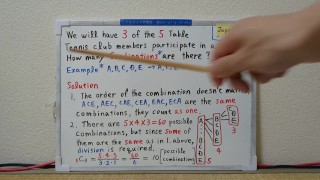 We will have 3 of the 5 Table
Tennis club members participate in a
How many combinations are there?
Example A, B, C, D, E → A,
Solution
1. The order of the combination doesn't matter
ACE, AEC, CAE, CEA, EAC, ECA are the same
combinations, they count as one.
2. There are 5×4×3=60 possible
combinations, but since some of
them are the same as in 1. above,
division is required.
5C3 = 5·4·3/3·2·1 = 60/6 = 10 possible
combinations
A
B
C
D
E
5
B
C
D
E
4
C
D
E
3